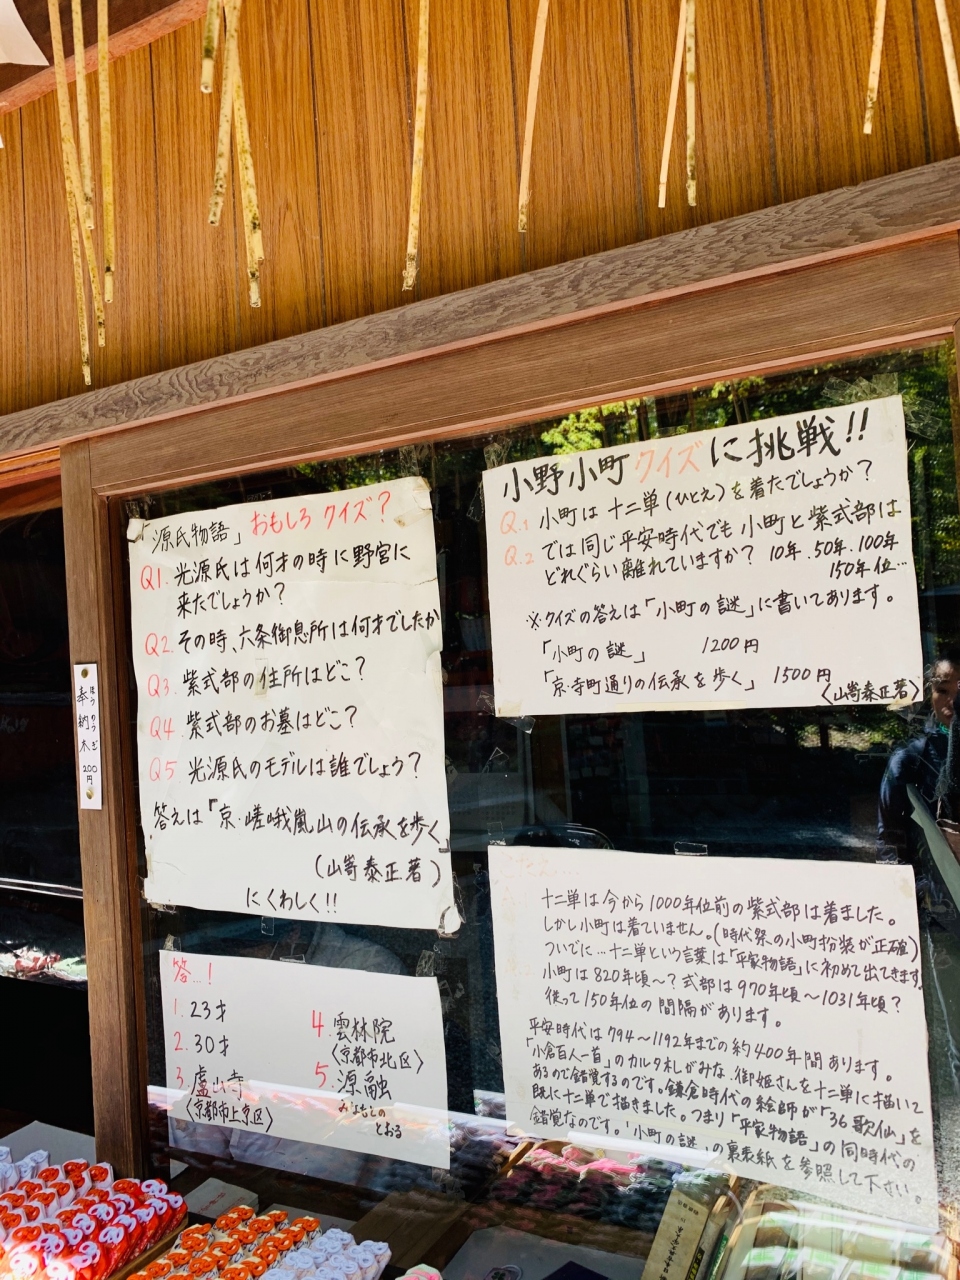 「源氏物語」おもしろ クイズ?
Q1. 光源氏は何才の時に野宮に
来たでしょうか?
Q2. その時、六条御息所は何才でしたか
Q3. 紫式部の住所はどこ?
Q4 紫式部のお墓はどこ?
Q5 光源氏のモデルは誰でしょう?
答えは『京・嵯峨嵐山の伝承を歩く』
(山嵜泰正著)
にくわしく!!
答…!
1. 23才
2. 30才
3. 盧山寺
〈京都市上京区〉
4. 雲林院
〈京都市北区〉
5. 源融
みなもとの
とおる
小野小町クイズに挑戦!!
Q.1 小町は十二単(ひとえ)を着たでしょうか?
Q.2 では同じ平安時代でも小町と紫式部は
どれぐらい離れていますか? 10年.50年.100年
150年位…
※クイズの答えは「小町の謎」に書いてあります。
「小町の謎」 1200円
「京・寺町通りの伝承を歩く」 1500円
〈山嵜泰正著〉
十二単は今から1000年位前の紫式部は着ました。
しかし小町は着ていません。(時代祭の小町扮装が正確)
ついでに…十二単という言葉は「平家物語」に初めて出てきます
小町は820年頃〜?式部は970年頃〜1031年頃?
従って150年位の間隔があります。
平安時代は794〜1192年までの約400年間あります。
「小倉百人一首」のカルタ札がみな、御姫さんを十二単に描いて
あるので錯覚するのです。鎌倉時代の絵師が「36歌仙」を
既に十二単で描きました。つまり「平家物語」の同時代の
錯覚なのです。「小町の謎」の裏表紙を参照して下さい。
奉納木
ほうのうぎ
200円